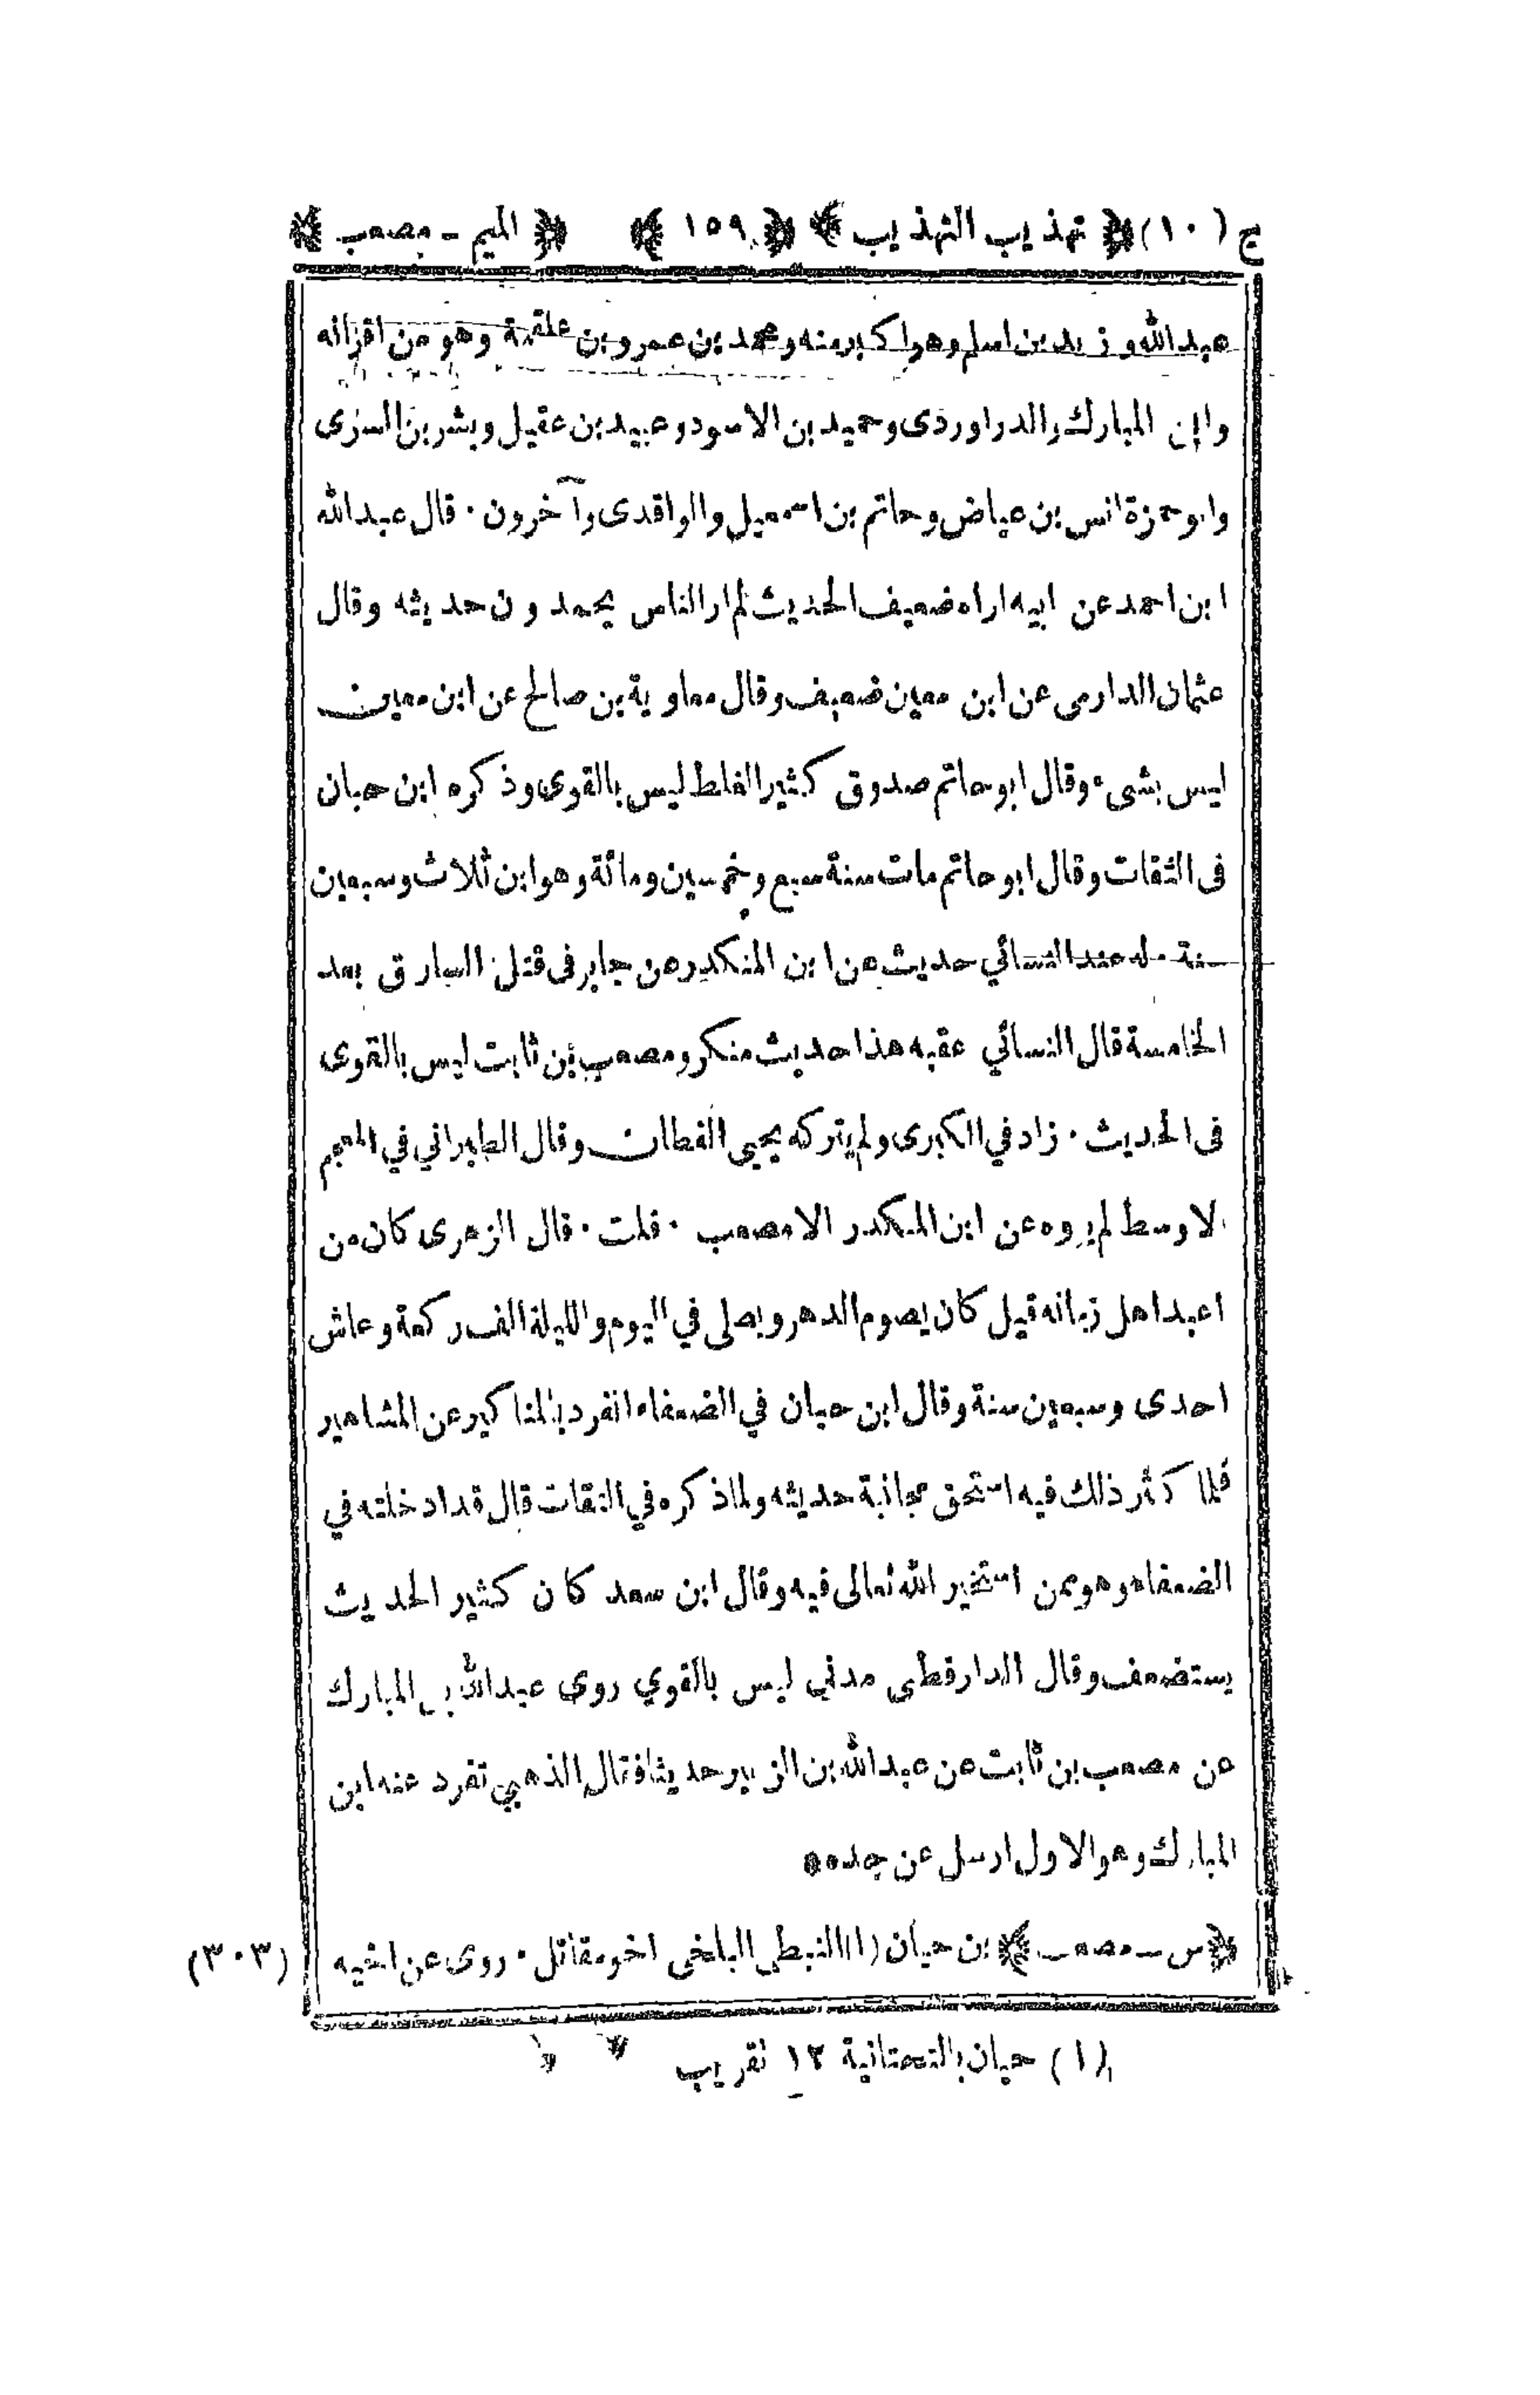 ج (١٠) ﴿ تهذيب التهذيب ﴾ ﴿ ١٥٩ ﴾ ﴿ الميم ـ مصعب ﴾
عبدالله وزيد بن اسلم وهو اكبر منه ومحمد بن عمرو بن علقمة وهو من اقرانه
وابن المبارك والدراوردى وحميد بن الاسود وعبيد بن عقيل وبشر بن السرى
وابو حمزة انس بن عياض وحاتم بن اسمعيل والواقدى وآخرون ٠ قال عبدالله
ابن احمد عن ابيه اراه ضعيف الحديث لم ار الناس يحمدون حديثه وقال
عثمان الدارمى عن ابن معين ضعيف وقال معاوية بن صالح عن ابن معين
ليس بشىء وقال ابو حاتم صدوق كثير الغلط ليس بالقوى وذكره ابن حبان
فى الثقات وقال ابو حاتم مات سنة سبع وخمسين ومائة وهو ابن ثلاث وسبعين
سنة ٠ له عند النسائي حديث عن ابن المنكدر عن جابر فى قتل السارق بعد
الخامسة قال النسائي عقبه هذا حديث منكر ومصعب بن ثابت ليس بالقوى
فى الحديث ٠ زاد في الكبرى ولم يتركه يحيى القطان وقال الطبراني في المعجم
الاوسط لم يروه عن ابن المنكدر الا مصعب ٠ قلت ٠ قال الزهرى كان من
اعبد اهل زمانه قيل كان يصوم الدهر ويصلى في اليوم والليلة الف ركعة وعاش
احدى وسبعين سنة وقال ابن حبان في الضعفاء انفرد بالمناكير عن المشاهير
فلما كثر ذلك فيه استحق مجانبة حديثه ولما ذكره في الثقات قال قد ادخلته في
الضعفاء وهو ممن استخير الله تعالى فيه وقال ابن سعد كان كثير الحديث
يستضعف وقال الدارقطى مدني ليس بالقوي روى عبدالله بن المبارك
عن مصعب بن ثابت عن عبدالله بن الزبير حديثا فقال الذهبي تفرد عنه ابن
المبارك وهو الاول ارسل عن جده ٥
﴿ س ـ مصعب ﴾ بن حيان (١) النبطى البلخى اخو مقاتل ٠ روى عن اخيه (٣٠٣)
(١) حيان بالتحتانية ١٢ تقريب